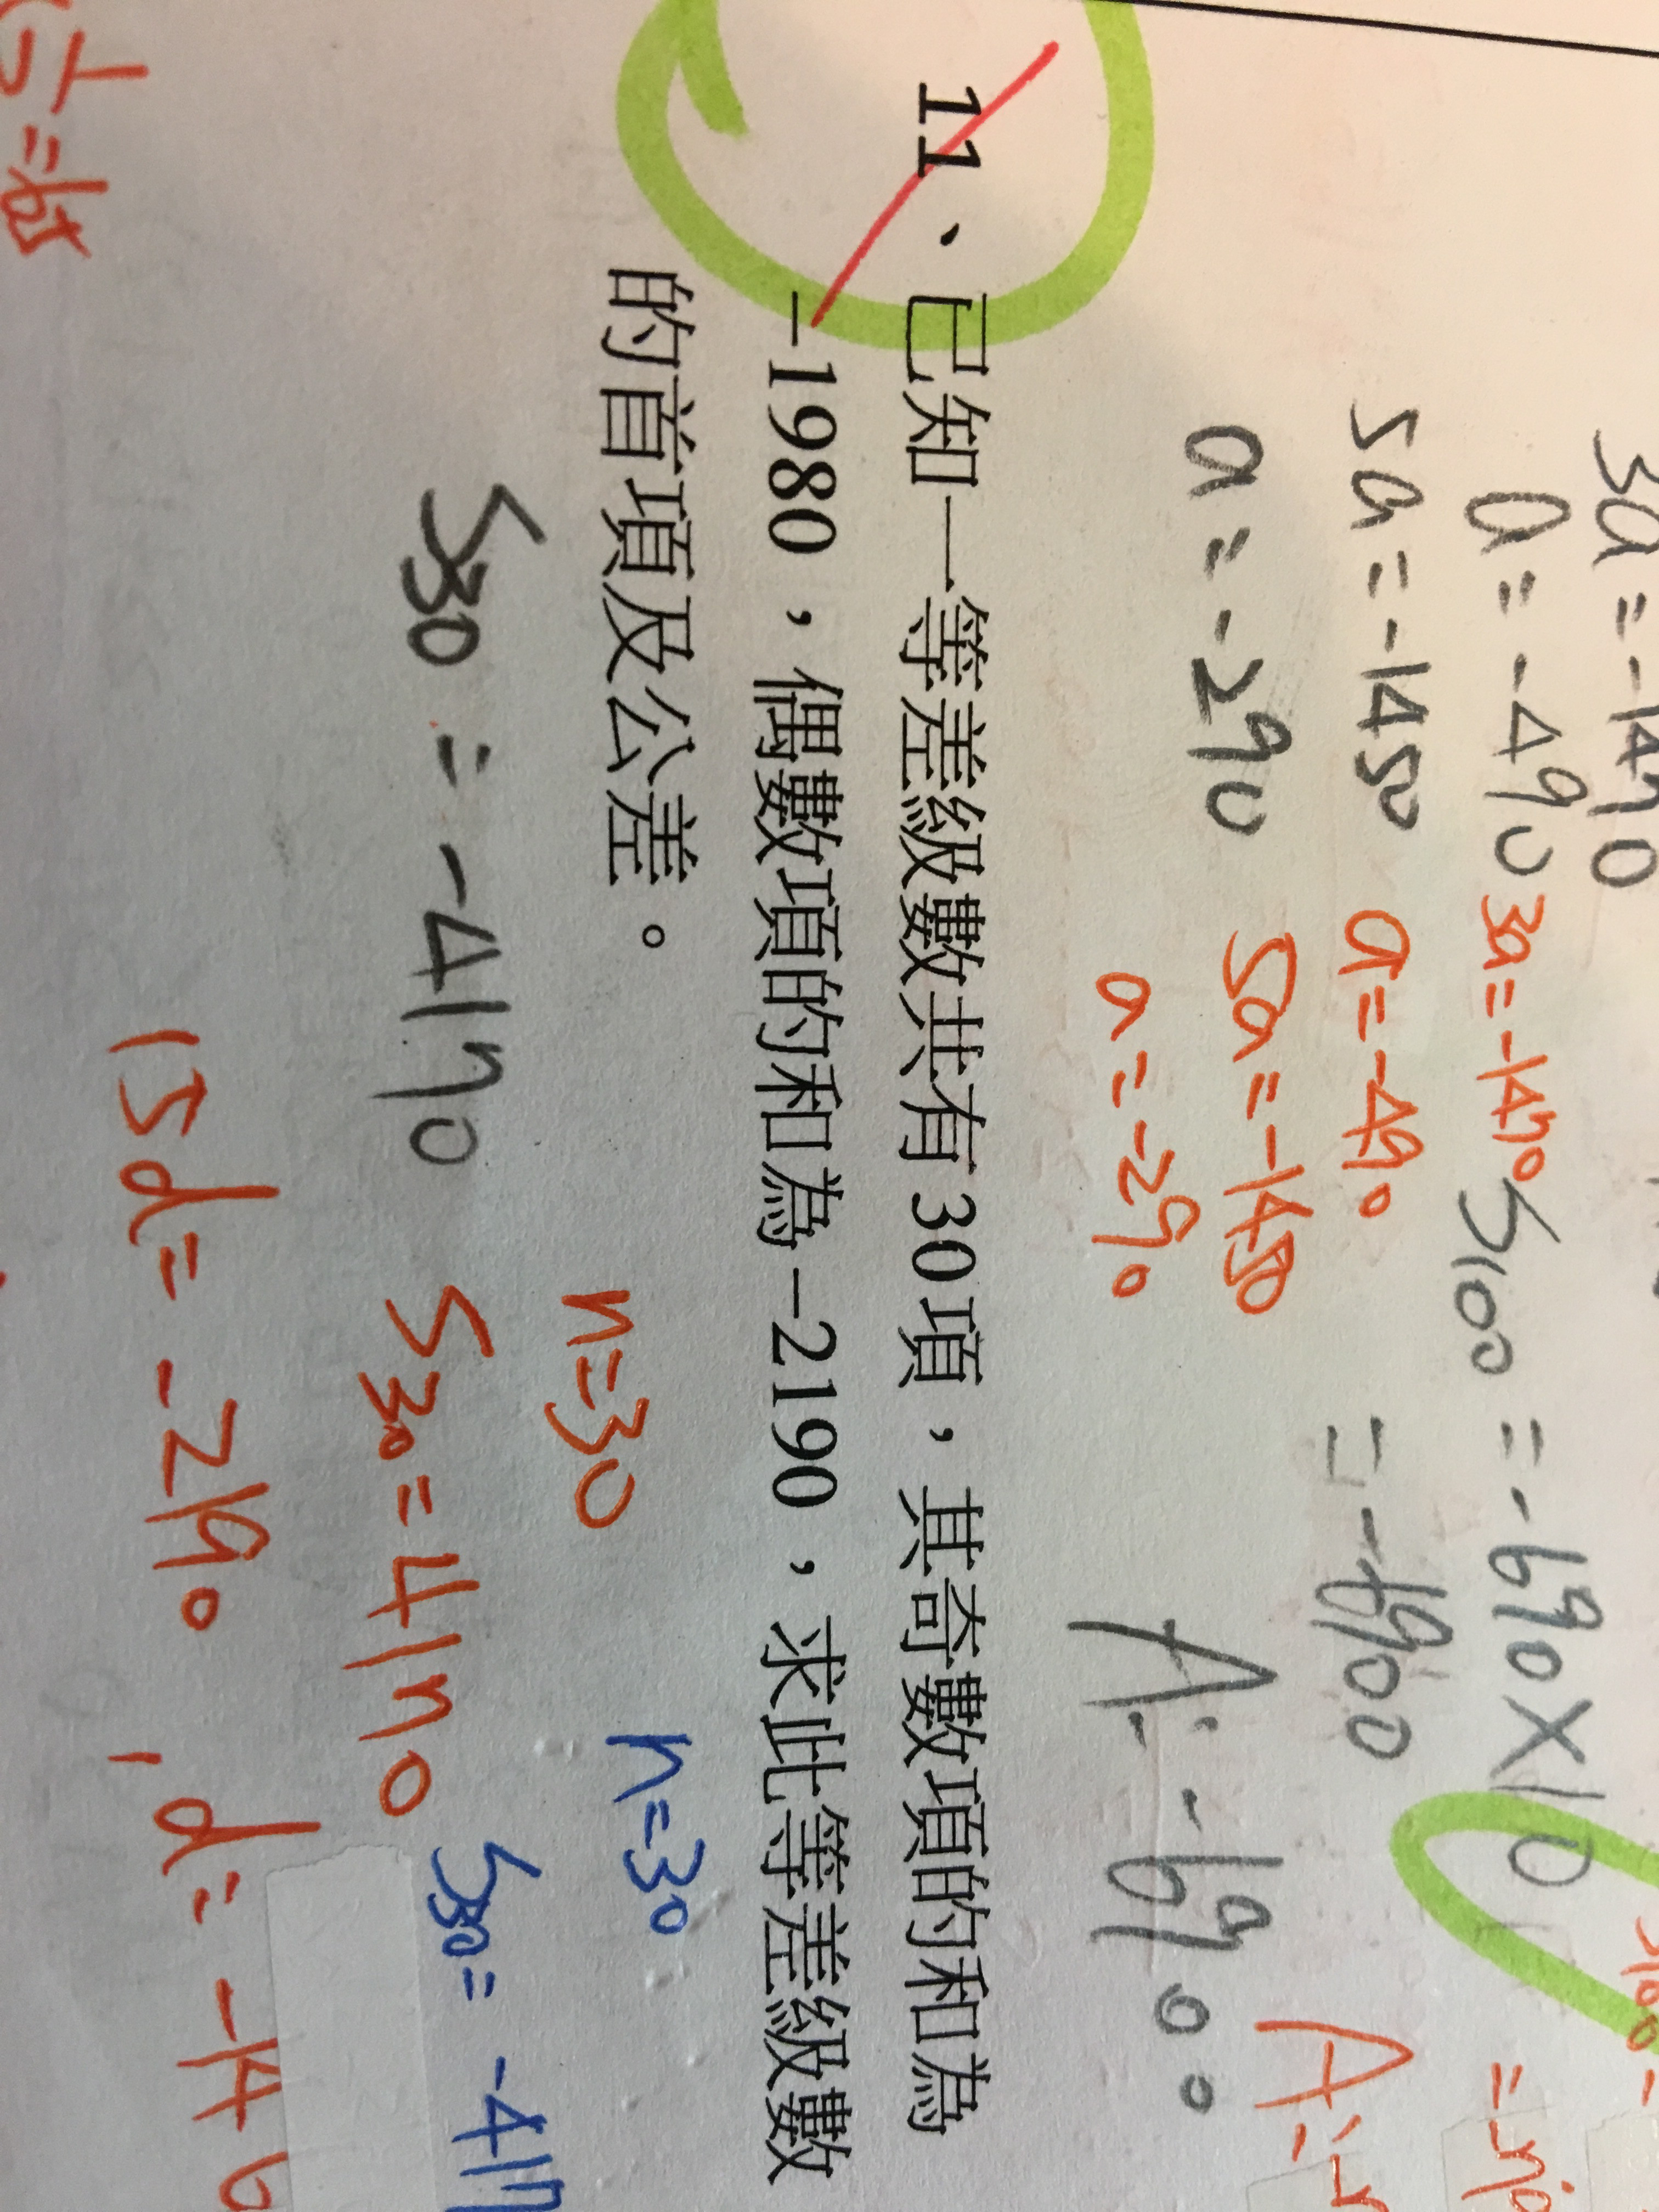 3a=-1470
a=-490
3a=-1470
S100=-690X10
5a=-1450
a=-490
=-6900
a=-290
5a=-1450
a=-290
A:-6900
11、已知一等差級數共有30項，其奇數項的和為
-1980，偶數項的和為-2190，求此等差級數
的首項及公差。
n=30
n=30
S30=-4170
S30=4170
S30=-417
15d=-210
d=-14